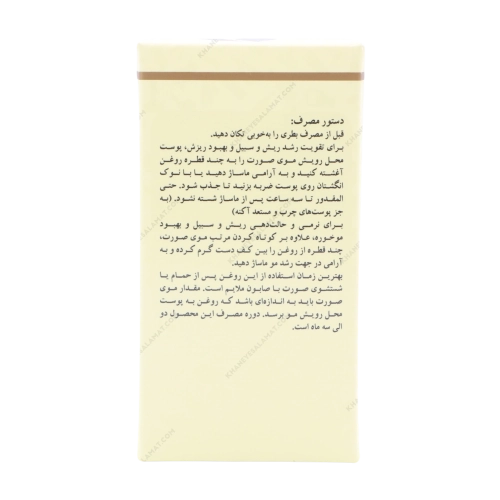 دستور مصرف:
قبل از مصرف بطری را به‌خوبی تکان دهید.
برای تقویت رشد ریش و سبیل و بهبود ریزش، پوست
محل رویش موی صورت را به چند قطره روغن
آغشته کنید و به آرامی ماساژ دهید یا با نوک
انگشتان روی پوست ضربه بزنید تا جذب شود. حتی
المقدور تا سه ساعت پس از ماساژ شسته نشود. (به
جز پوست‌های چرب و مستعد آکنه)
برای نرمی و حالت‌دهی ریش و سبیل و بهبود
موخوره، علاوه بر کوتاه کردن مرتب موی صورت،
چند قطره از روغن را بین کف دست گرم کرده و به
آرامی در جهت رشد مو ماساژ دهید.
بهترین زمان استفاده از این روغن پس از حمام یا
شستشوی صورت با صابون ملایم است. مقدار موی
صورت باید به اندازه‌ای باشد که روغن به پوست
محل رویش مو برسد. دوره مصرف این محصول دو
الی سه ماه است.
KHANEYESALAMAT.COM